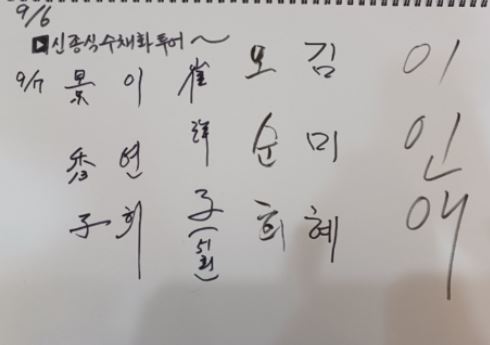 9/6
▶신종식수채화투어~
9/7
이연희
崔
子(석회)
오순희
김미혜
이인애